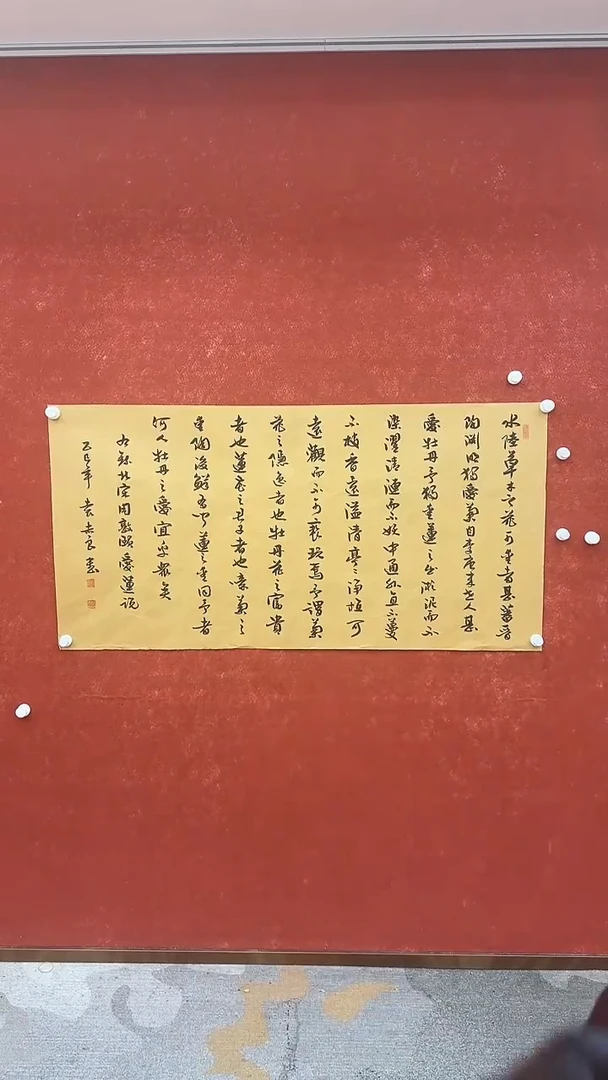 水陸草木之花可愛者甚蕃晉
陶淵明獨愛菊自李唐來世人甚
愛牡丹予獨愛蓮之出淤泥而不
染濯清漣而不妖中通外直不蔓
不枝香遠溢清亭〻淨植可
遠觀而不可褻玩焉予謂菊
花之隱逸者也牡丹花之富貴
者也蓮花之君子者也噫菊之
愛陶後鮮有聞蓮之愛同予者
何人牡丹之愛宜乎眾矣
右録北宋周敦頤愛蓮說
乙巳年 袁志良書